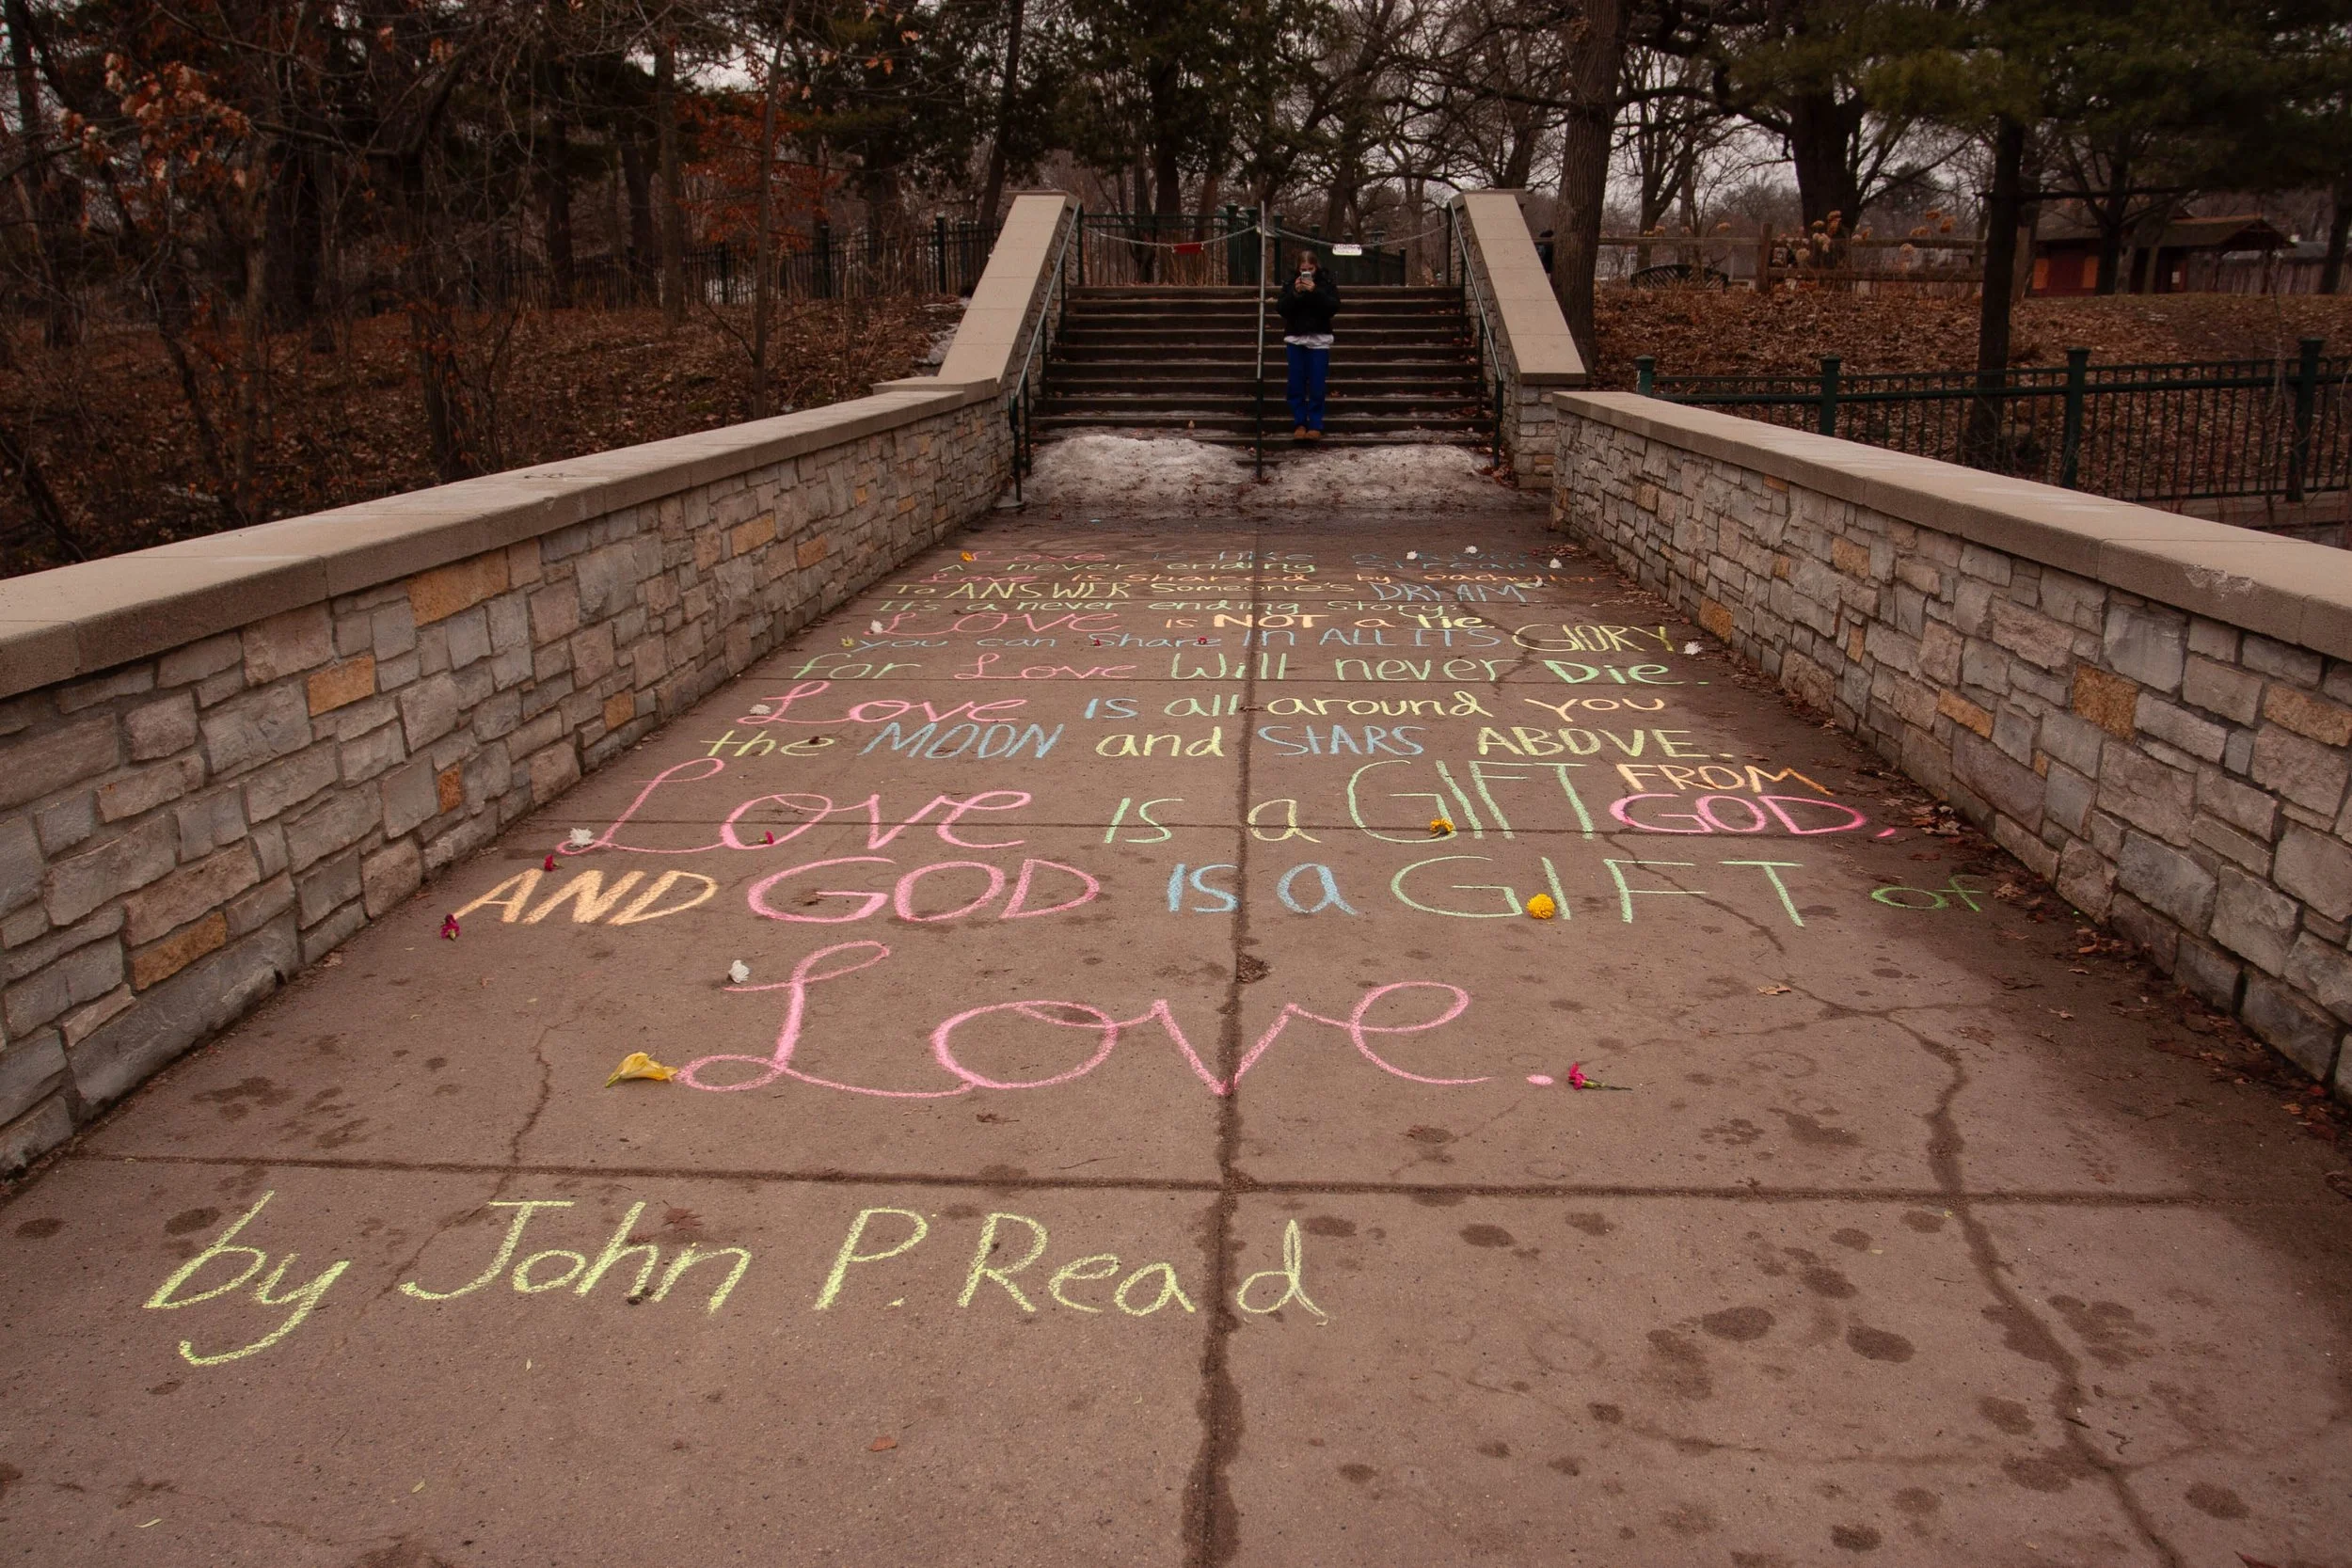 Love is like a
a never ending stream
Love is shared by each
To ANSWER Someone's DREAM
It's a never ending story:
LOVE is NOT a lie.
you can Share IN ALL ITS GLORY
for Love Will never Die.
Love IS all around you
the MOON and STARS ABOVE.
Love IS a GIFT FROM GOD,
AND GOD IS a GIFT of
Love.
by John P. Read